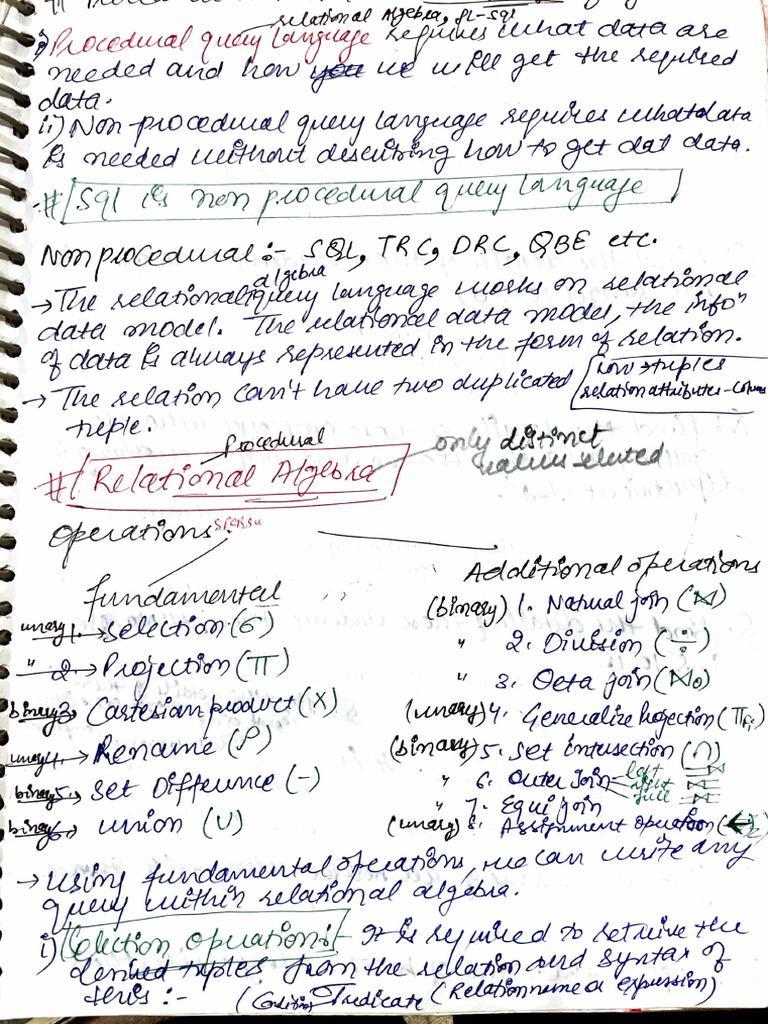 relational Algebra, PL-SQL
i) Procedural query language requires what data are
needed and how you we will get the required
data.
ii) Non procedural query language requires what data
is needed without describing how to get dat data.
# SQL is non procedural query language
Nonprocedural :- SQL, TRC, DRC, QBE etc.
algebra
→ The relational query language works on relational
data model. The relational data model, the infoⁿ
of data is always represented in the form of relation.
→ The relation can't have two duplicated
row → tuples
relation attributes - column
tuple.
Procedural
# Relational Algebra
only distinct
values selected
Operations :
fundamental
unary 1. → Selection (σ)
" 2 → Projection (Π)
binary 3 → Cartesian product (X)
unary 4. → Rename (ρ)
binary 5. → Set Difference (-)
binary 6. → Union (U)
Additional operations
(binary) 1. Natural join (⋈)
" 2. Division (÷)
" 3. Oeta join (⋈θ)
(unary) 4. Generalize Projection (Π)
(binary) 5. Set intersection (∩)
" 6. Outer Join left ⟕
right ⟖
full ⟗
" 7. Equi join
(unary) 8. Assignment operation (←)
→ Using fundamental operations, we can write any
query within relational algebra.
i) Selection operation :- It is required to retrive the
desired tuples from the relation and syntax of
this :-
(Condition) Predicate (Relation name or expression)